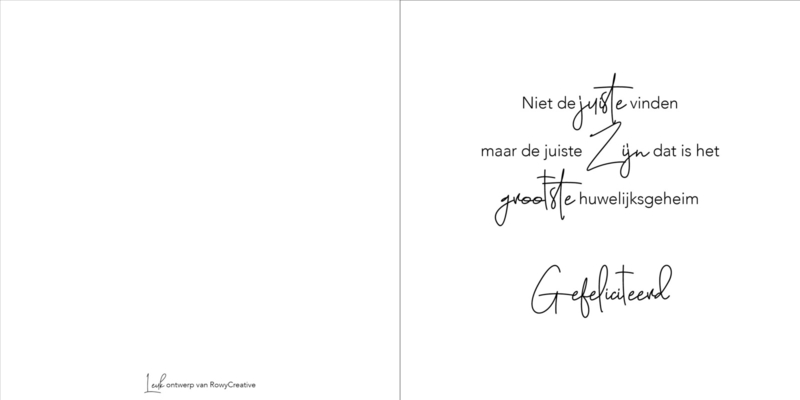 Niet de juiste vinden
maar de juiste Zijn dat is het
grootste huwelijksgeheim
Gefeliciteerd
Leuk ontwerp van RowyCreative